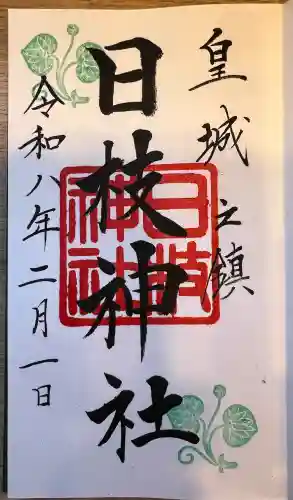 皇城之鎮
日枝神社
令和八年二月一日
日枝神社